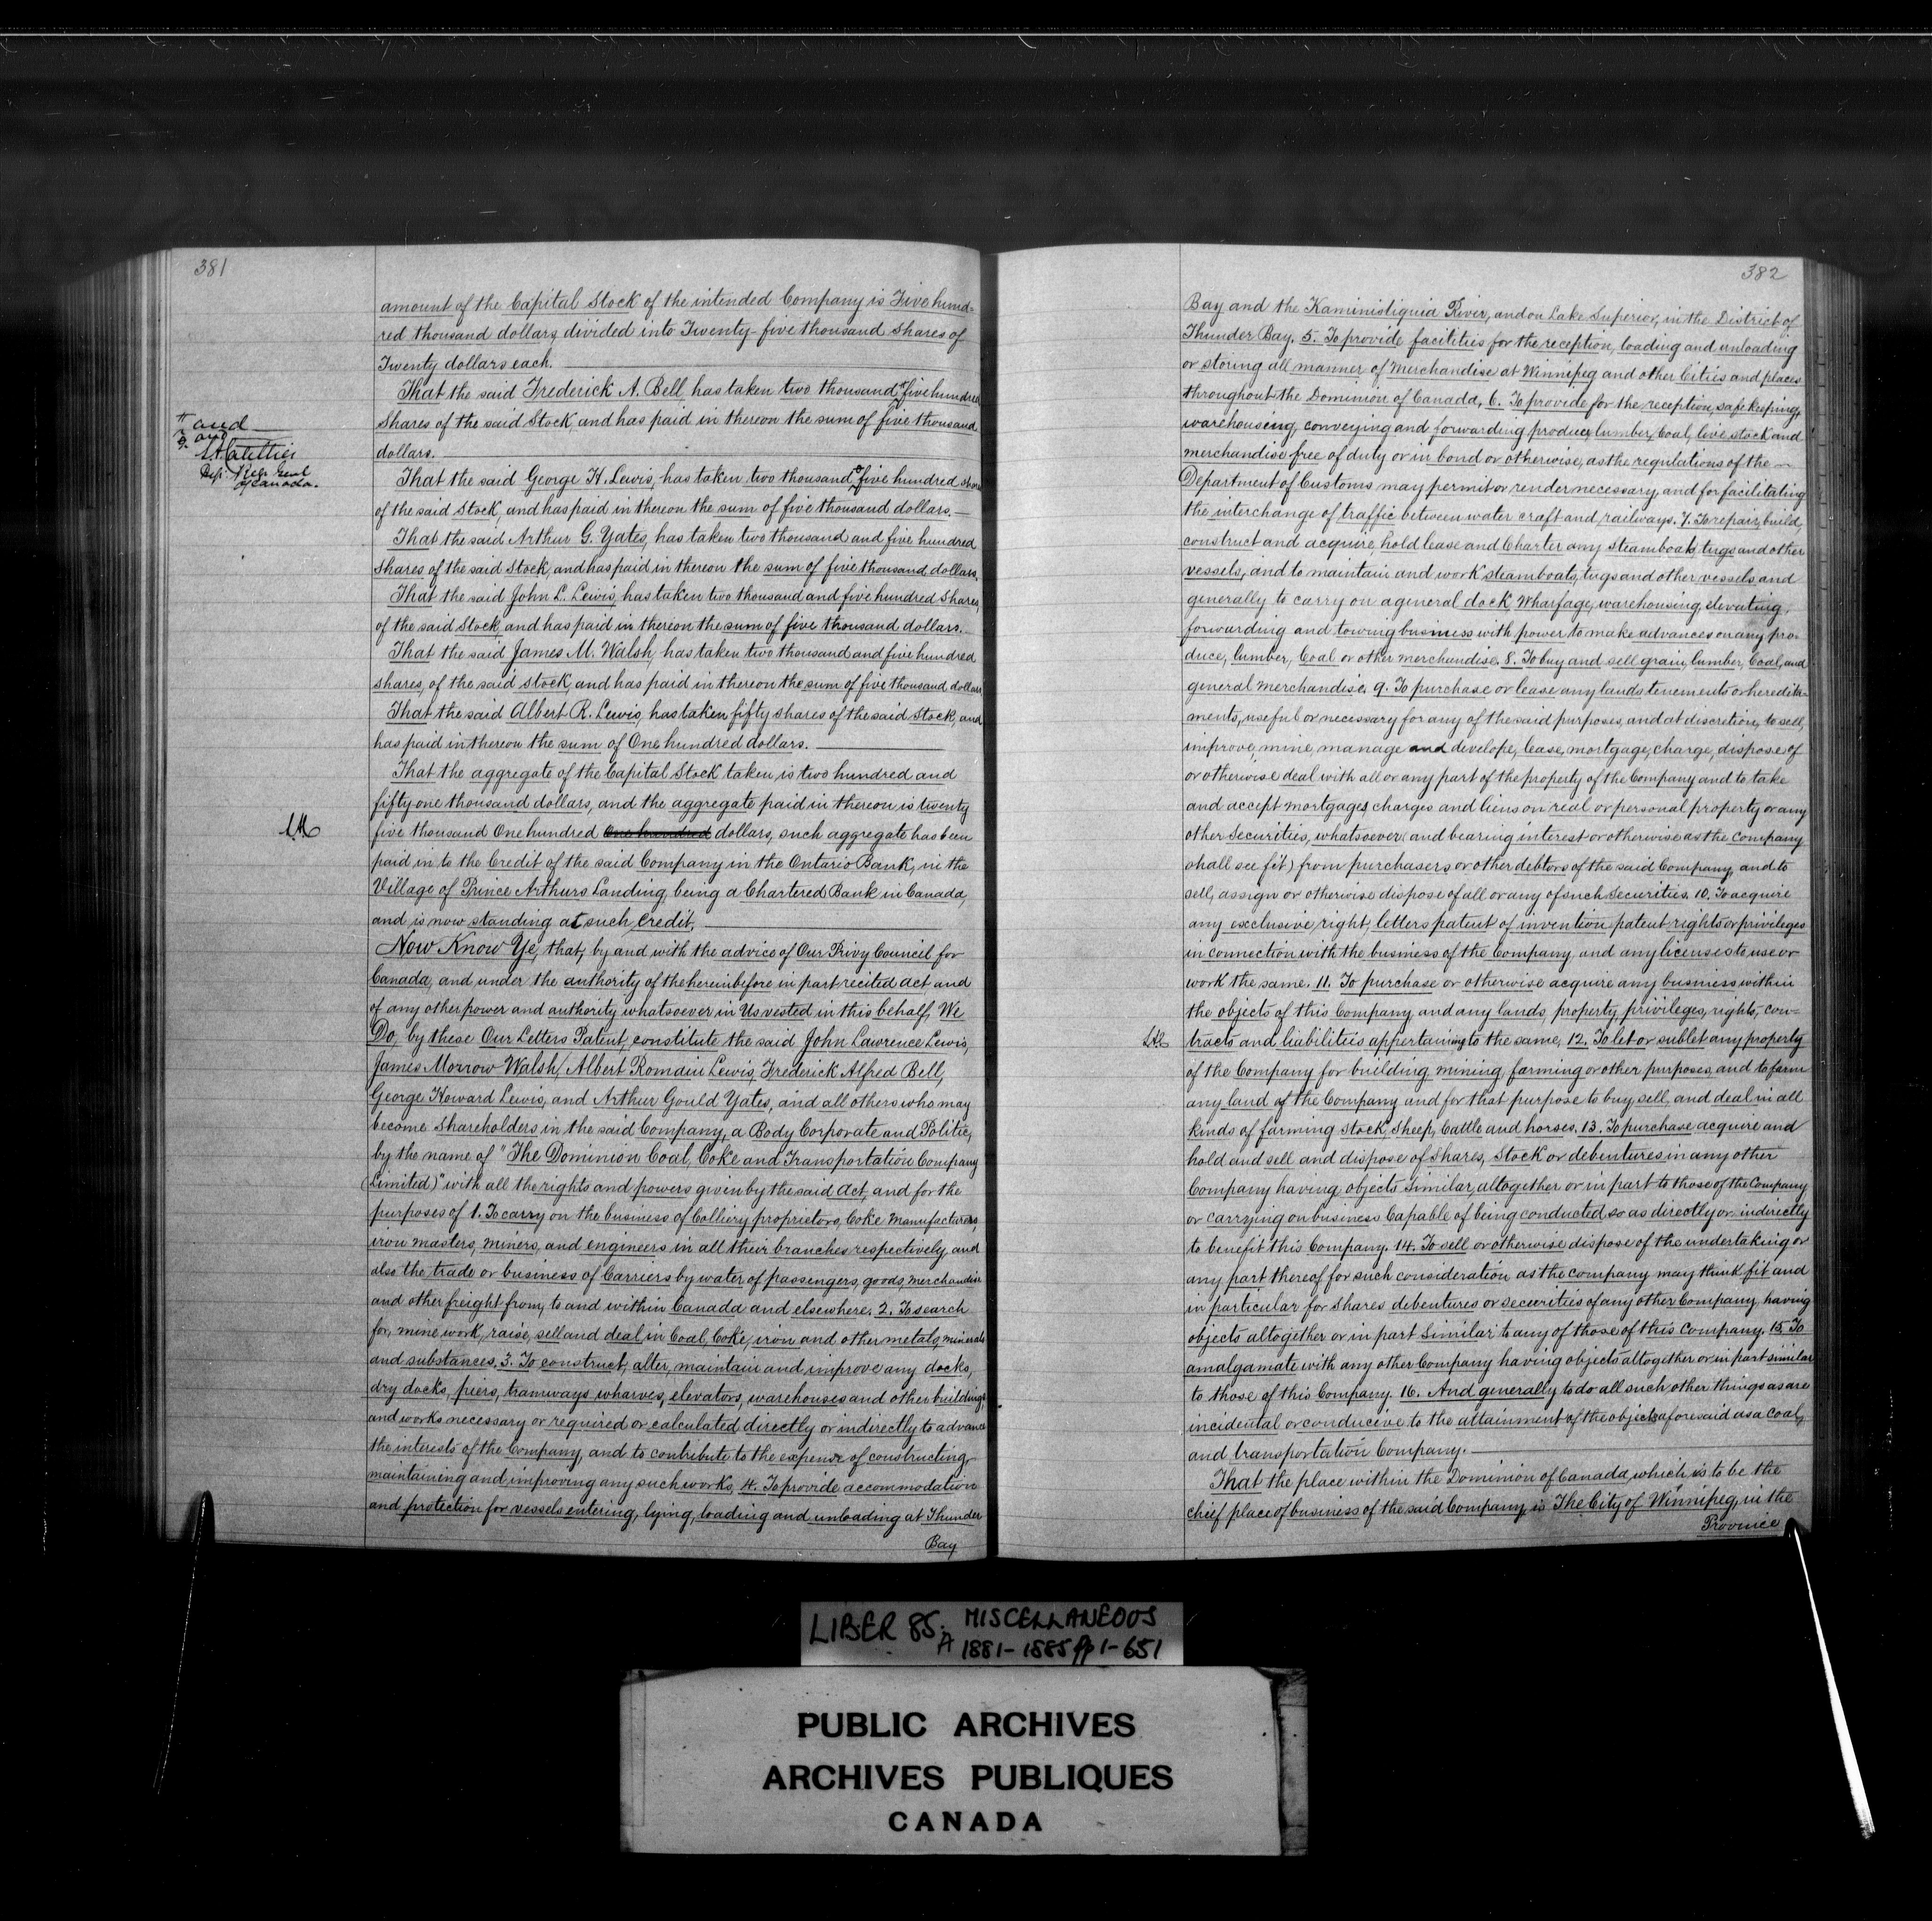 381
amount of the Capital Stock of the intended Company is Five hund-
red thousand dollars divided into Twenty-five thousand Shares of
Twenty dollars each.
That the said Frederick A. Bell, has taken two thousand five hundred
Shares of the said Stock, and has paid in thereon the sum of five thousand
dollars.
and
and
Dep. Regr Genl
of Canada.
That the said George H. Lewis, has taken two thousand five hundred shares
of the said Stock, and has paid in thereon the sum of five thousand dollars.
That the said Arthur G. Yates, has taken two thousand and five hundred
Shares of the said Stock, and has paid in thereon the sum of five thousand dollars.
That the said John L. Lewis, has taken two thousand and five hundred Shares,
of the said Stock and has paid in thereon the sum of five thousand dollars.
That the said James M. Walsh, has taken two thousand and five hundred
shares, of the said stock, and has paid in thereon the sum of five thousand dollars
That the said Albert R. Lewis, has taken fifty shares of the said Stock, and
has paid in thereon the sum of One hundred dollars.
That the aggregate of the Capital Stock taken is two hundred and
fifty one thousand dollars, and the aggregate paid in thereon is twenty
five thousand One hundred One hundred dollars, such aggregate has been
paid in to the Credit of the said Company in the Ontario Bank, in the
Village of Prince Arthurs Landing, being a Chartered Bank in Canada,
and is now standing at such Credit.
Now Know Ye, that, by and with the advice of Our Privy Council for
Canada, and under the authority of the hereinbefore in part recited Act and
of any other power and authority whatsoever in Us vested in this behalf, We
Do, by these Our Letters Patent, constitute the said John Lawrence Lewis,
James Morrow Walsh, Albert Romdin Lewis, Frederick Alfred Bell,
George Howard Lewis, and Arthur Gould Yates, and all others who may
become Shareholders in the said Company, a Body Corporate and Politic,
by the name of "The Dominion Coal, Coke and Transportation Company
(Limited)" with all the rights and powers given by the said Act, and for the
purposes of 1. To carry on the business of Colliery proprietors, Coke manufacturers
iron masters, miners, and engineers in all their branches respectively and
also the trade or business of Carriers by water of passengers, goods, merchandise
and other freight from, to and within Canada and elsewhere. 2. To search
for, mine work, raise, sell and deal in Coal, Coke, iron and other metals, minerals
and substances. 3. To construct, alter, maintain and improve any docks,
dry docks, piers, tramways wharves, elevators, warehouses and other buildings
and works necessary or required or calculated directly or indirectly to advance
the interests of the Company, and to contribute to the expense of constructing,
maintaining and improving any such works, 4. To provide accommodation
and protection for vessels entering, lying, loading and unloading at Thunder
Bay
382
Bay and the Kaministiquia River, and on Lake Superior, in the District of
Thunder Bay. 5. To provide facilities for the reception, loading and unloading
or storing all manner of Merchandise at Winnipeg and other Cities and places
throughout the Dominion of Canada, 6. To provide for the reception, safe keeping,
warehouseing, conveying and forwarding produce, lumber, Coal, live stock and
merchandise free of duty or in bond or otherwise, as the regulations of the
Department of Customs may permit or render necessary, and for facilitating
the interchange of traffic between water craft and railways. 7. To repair, build,
construct and acquire, hold lease and Charter any steamboats, tugs and other
vessels, and to maintain and work steamboats, tugs and other vessels and
generally to carry on a general dock, Wharfage, warehousing, elevating,
forwarding and towing business with power to make advances on any pro-
duce, lumber, Coal or other merchandise. 8. To buy and sell grain, lumber, Coal, and
general merchandise. 9. To purchase or lease any lands tenements or heredita-
ments, useful or necessary for any of the said purposes, and at discretion, to sell,
improve, mine, manage and develope, lease, mortgage, charge, dispose of
or otherwise deal with all or any part of the property of the Company and to take
and accept mortgages charges and liens on real or personal property or any
other Securities, whatsoever (and bearing interest or otherwise as the Company
shall see fit) from purchasers or other debtors of the said Company, and to
sell, assign or otherwise dispose of all or any of such Securities. 10. To acquire
any exclusive right, letters patent of invention patent rights or privileges
in connection with the business of the Company and any licenses to use or
work the same. 11. To purchase or otherwise acquire any business within
the objects of this Company and any lands, property, privileges, rights, con-
tracts and liabilities appertaining to the same, 12. To let or sublet any property
of the Company for building, mining, farming or other purposes, and to farm
any land of the Company and for that purpose to buy sell, and deal in all
kinds of farming stock, Sheep, Cattle and horses. 13. To purchase acquire and
hold and sell and dispose of Shares, Stock or debentures in any other
Company having objects Similar, altogether or in part to those of the Company
or carrying on business Capable of being conducted so as directly or indirectly
to benefit this Company. 14. To sell or otherwise dispose of the undertaking or
any part thereof for such consideration as the company may think fit and
in particular for Shares debentures or securities of any other Company, having
objects altogether or in part Similar to any of those of this Company. 15. To
amalgamate with any other Company having objects altogether or in part similar
to those of this Company. 16. And generally to do all such other things as are
incidental or conducive to the attainment of the objects aforesaid as a Coal,
and transportation Company.
That the place within the Dominion of Canada, which is to be the
chief place of business of the said Company, is The City of Winnipeg, in the
Province
LIBER 85. MISCELLANEOUS
A 1881-1885 pp 1-651
PUBLIC ARCHIVES
ARCHIVES PUBLIQUES
CANADA